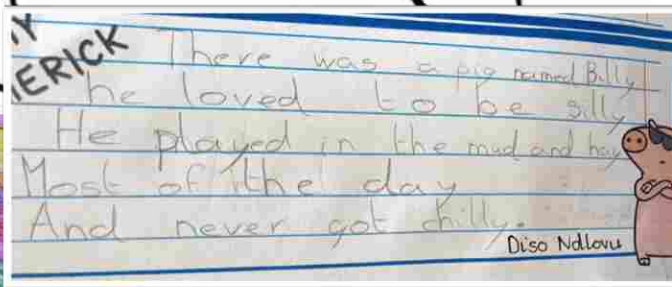 There was a pig named Billy
he loved to be silly
He played in the mud and hay
Most of the day
And never got chilly.
Diso Ndlovu